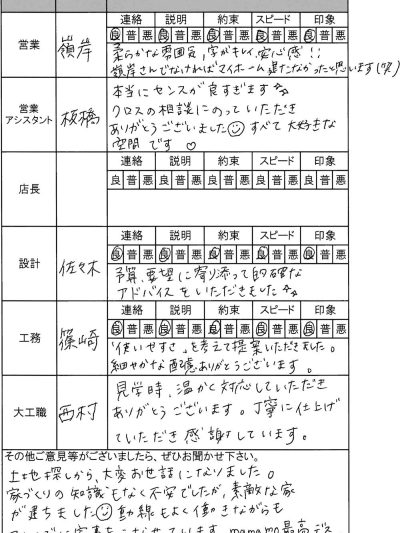 連絡 説明 約束 スピード 印象
営業 嶺岸 良 普 悪 良 普 悪 良 普 悪 良 普 悪 良 普 悪
柔らかな雰囲気、字がキレイ、安心感!!
嶺岸さんでなければマイホーム建たなかったと思います(笑)
営業アシスタント 板橋 本当にセンスが良すぎます
クロスの相談にのっていただき
ありがとうございました すべて大好きな
空間です♡
連絡 説明 約束 スピード 印象
店長 良 普 悪 良 普 悪 良 普 悪 良 普 悪 良 普 悪
連絡 説明 約束 スピード 印象
設計 佐々木 良 普 悪 良 普 悪 良 普 悪 良 普 悪 良 普 悪
予算、要望に寄り添って的確な
アドバイスをいただきました
連絡 説明 約束 スピード 印象
工務 篠崎 良 普 悪 良 普 悪 良 普 悪 良 普 悪 良 普 悪
「使いやすさ」を考えて提案いただきました。
細やかな配慮ありがとうございます。
大工職 西村 見学時、温かく対応していただき
ありがとうございます。丁寧に仕上げ
ていただき感謝しています。
その他ご意見等がございましたら、ぜひお聞かせ下さい。
土地探しから、大変お世話になりました。
家づくりの知識もなく不安でしたが、素敵な家
が建ちました 動線もよく働きながらも
mamamo最高デス